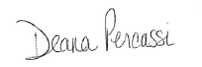 Deana Percassi